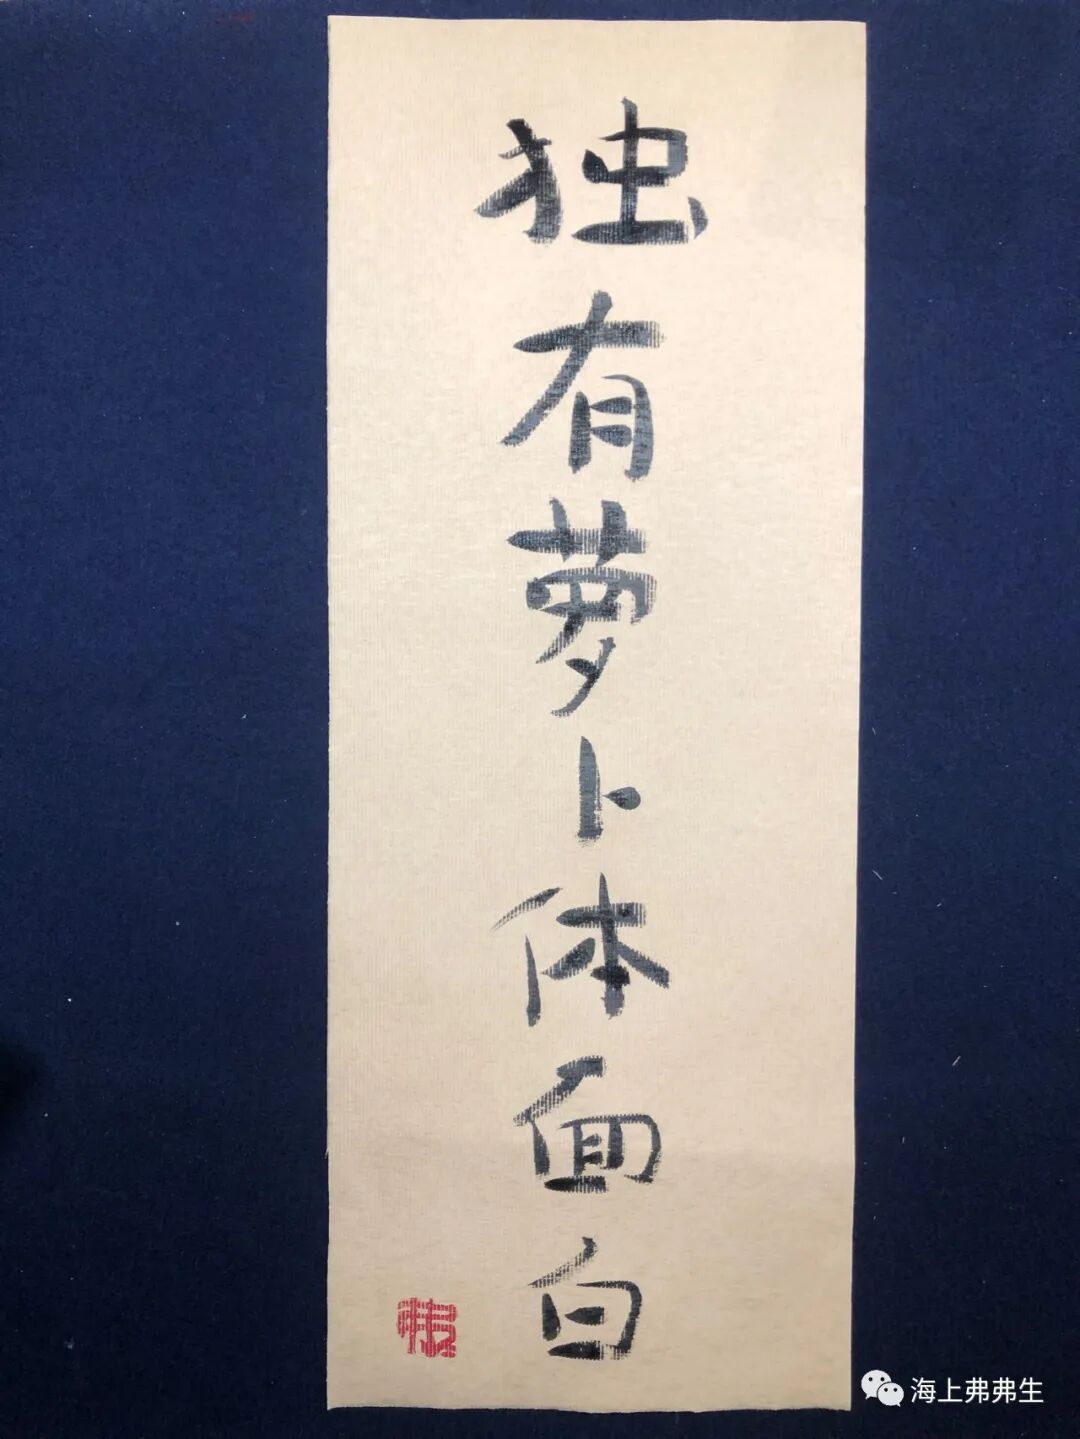 独有萝卜体面白
海上弗弗生